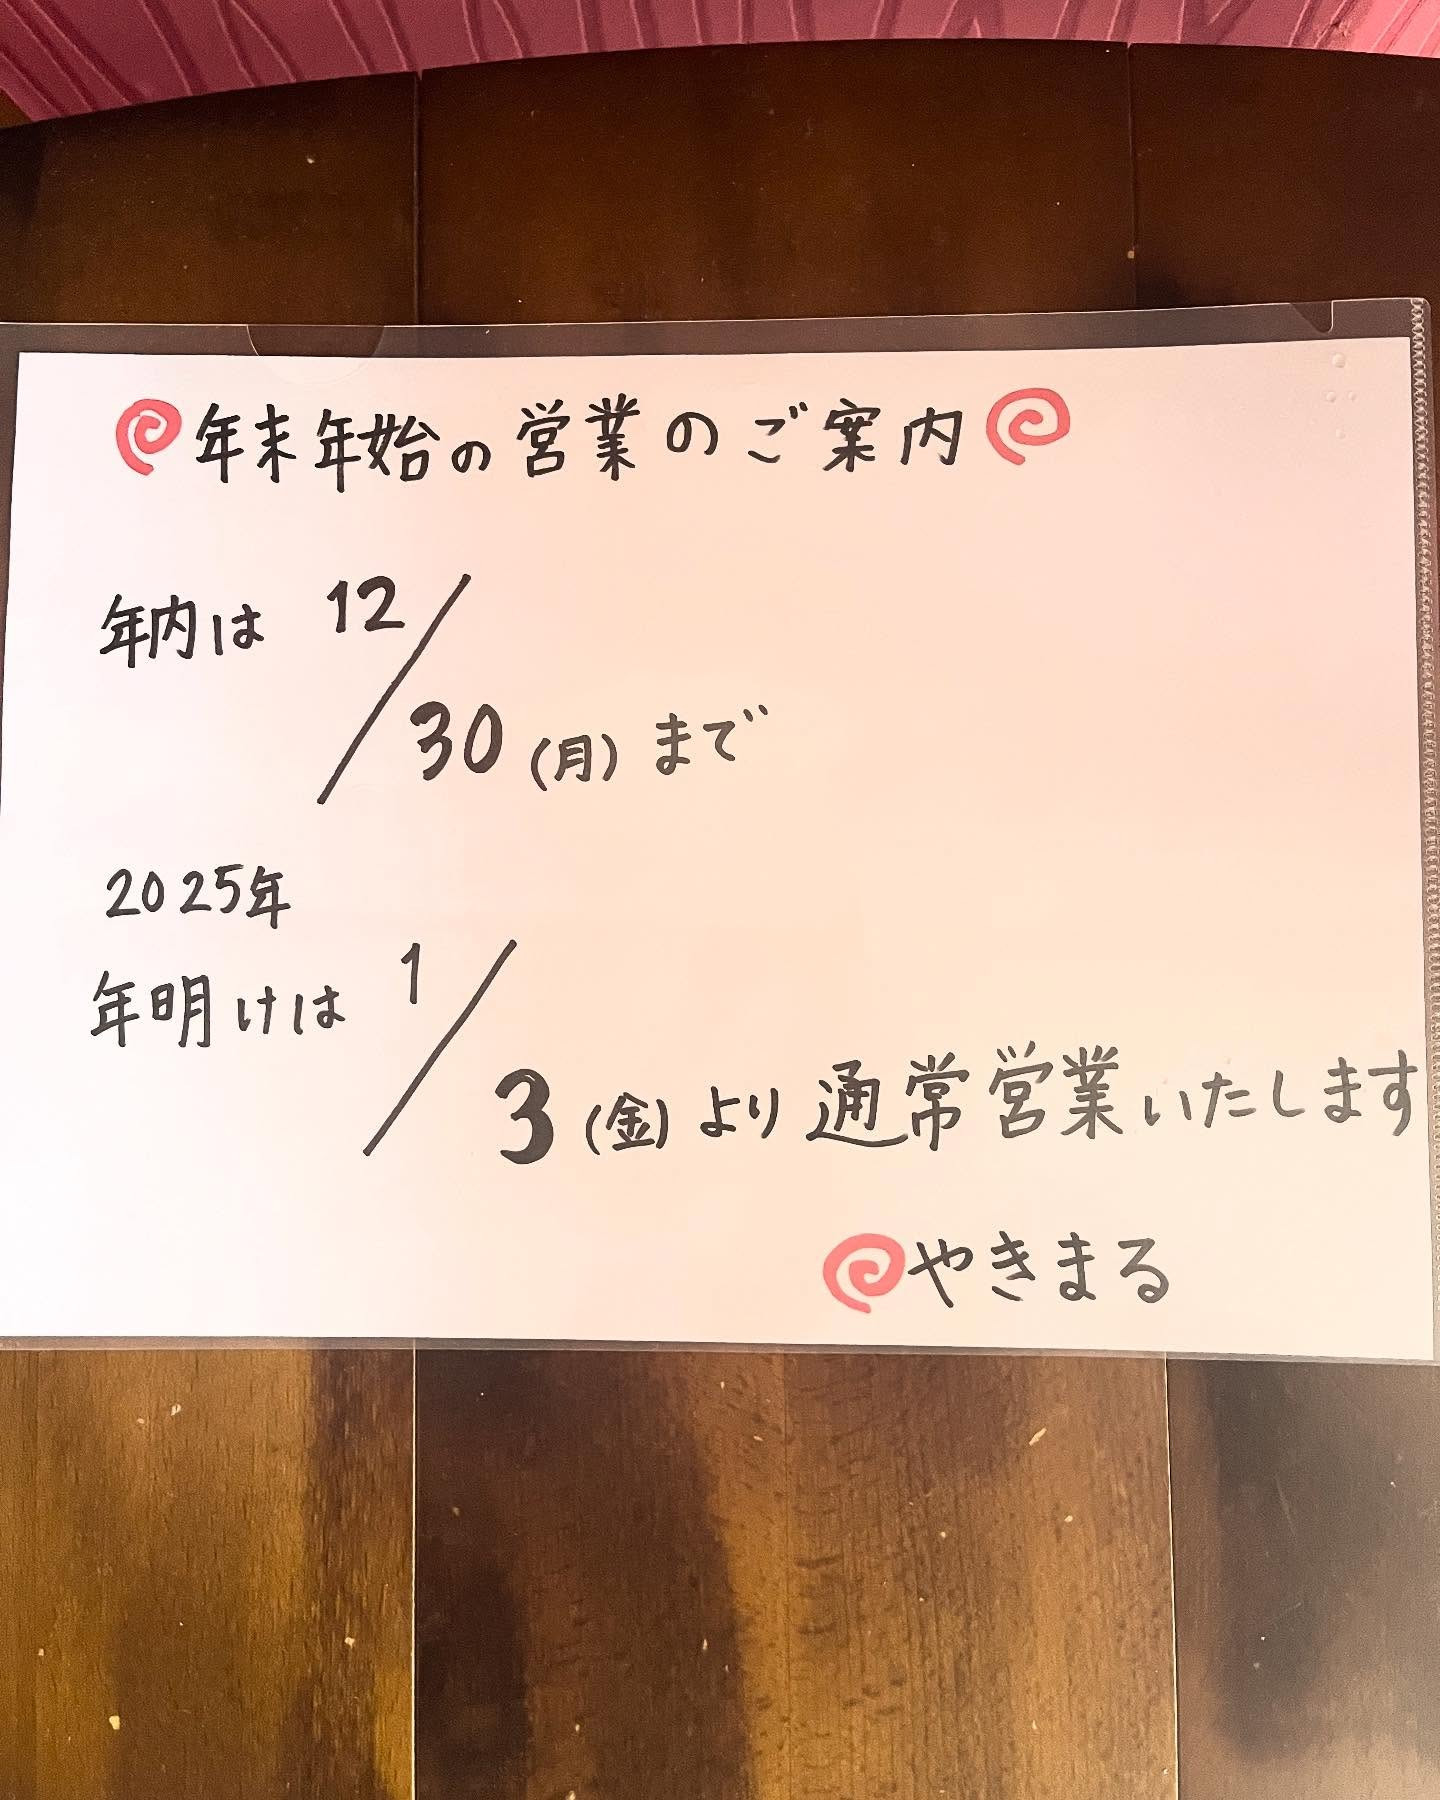 年末年始の営業のご案内
年内は 12/30(月)まで
2025年
年明けは 1/3(金)より通常営業いたします
やきまる